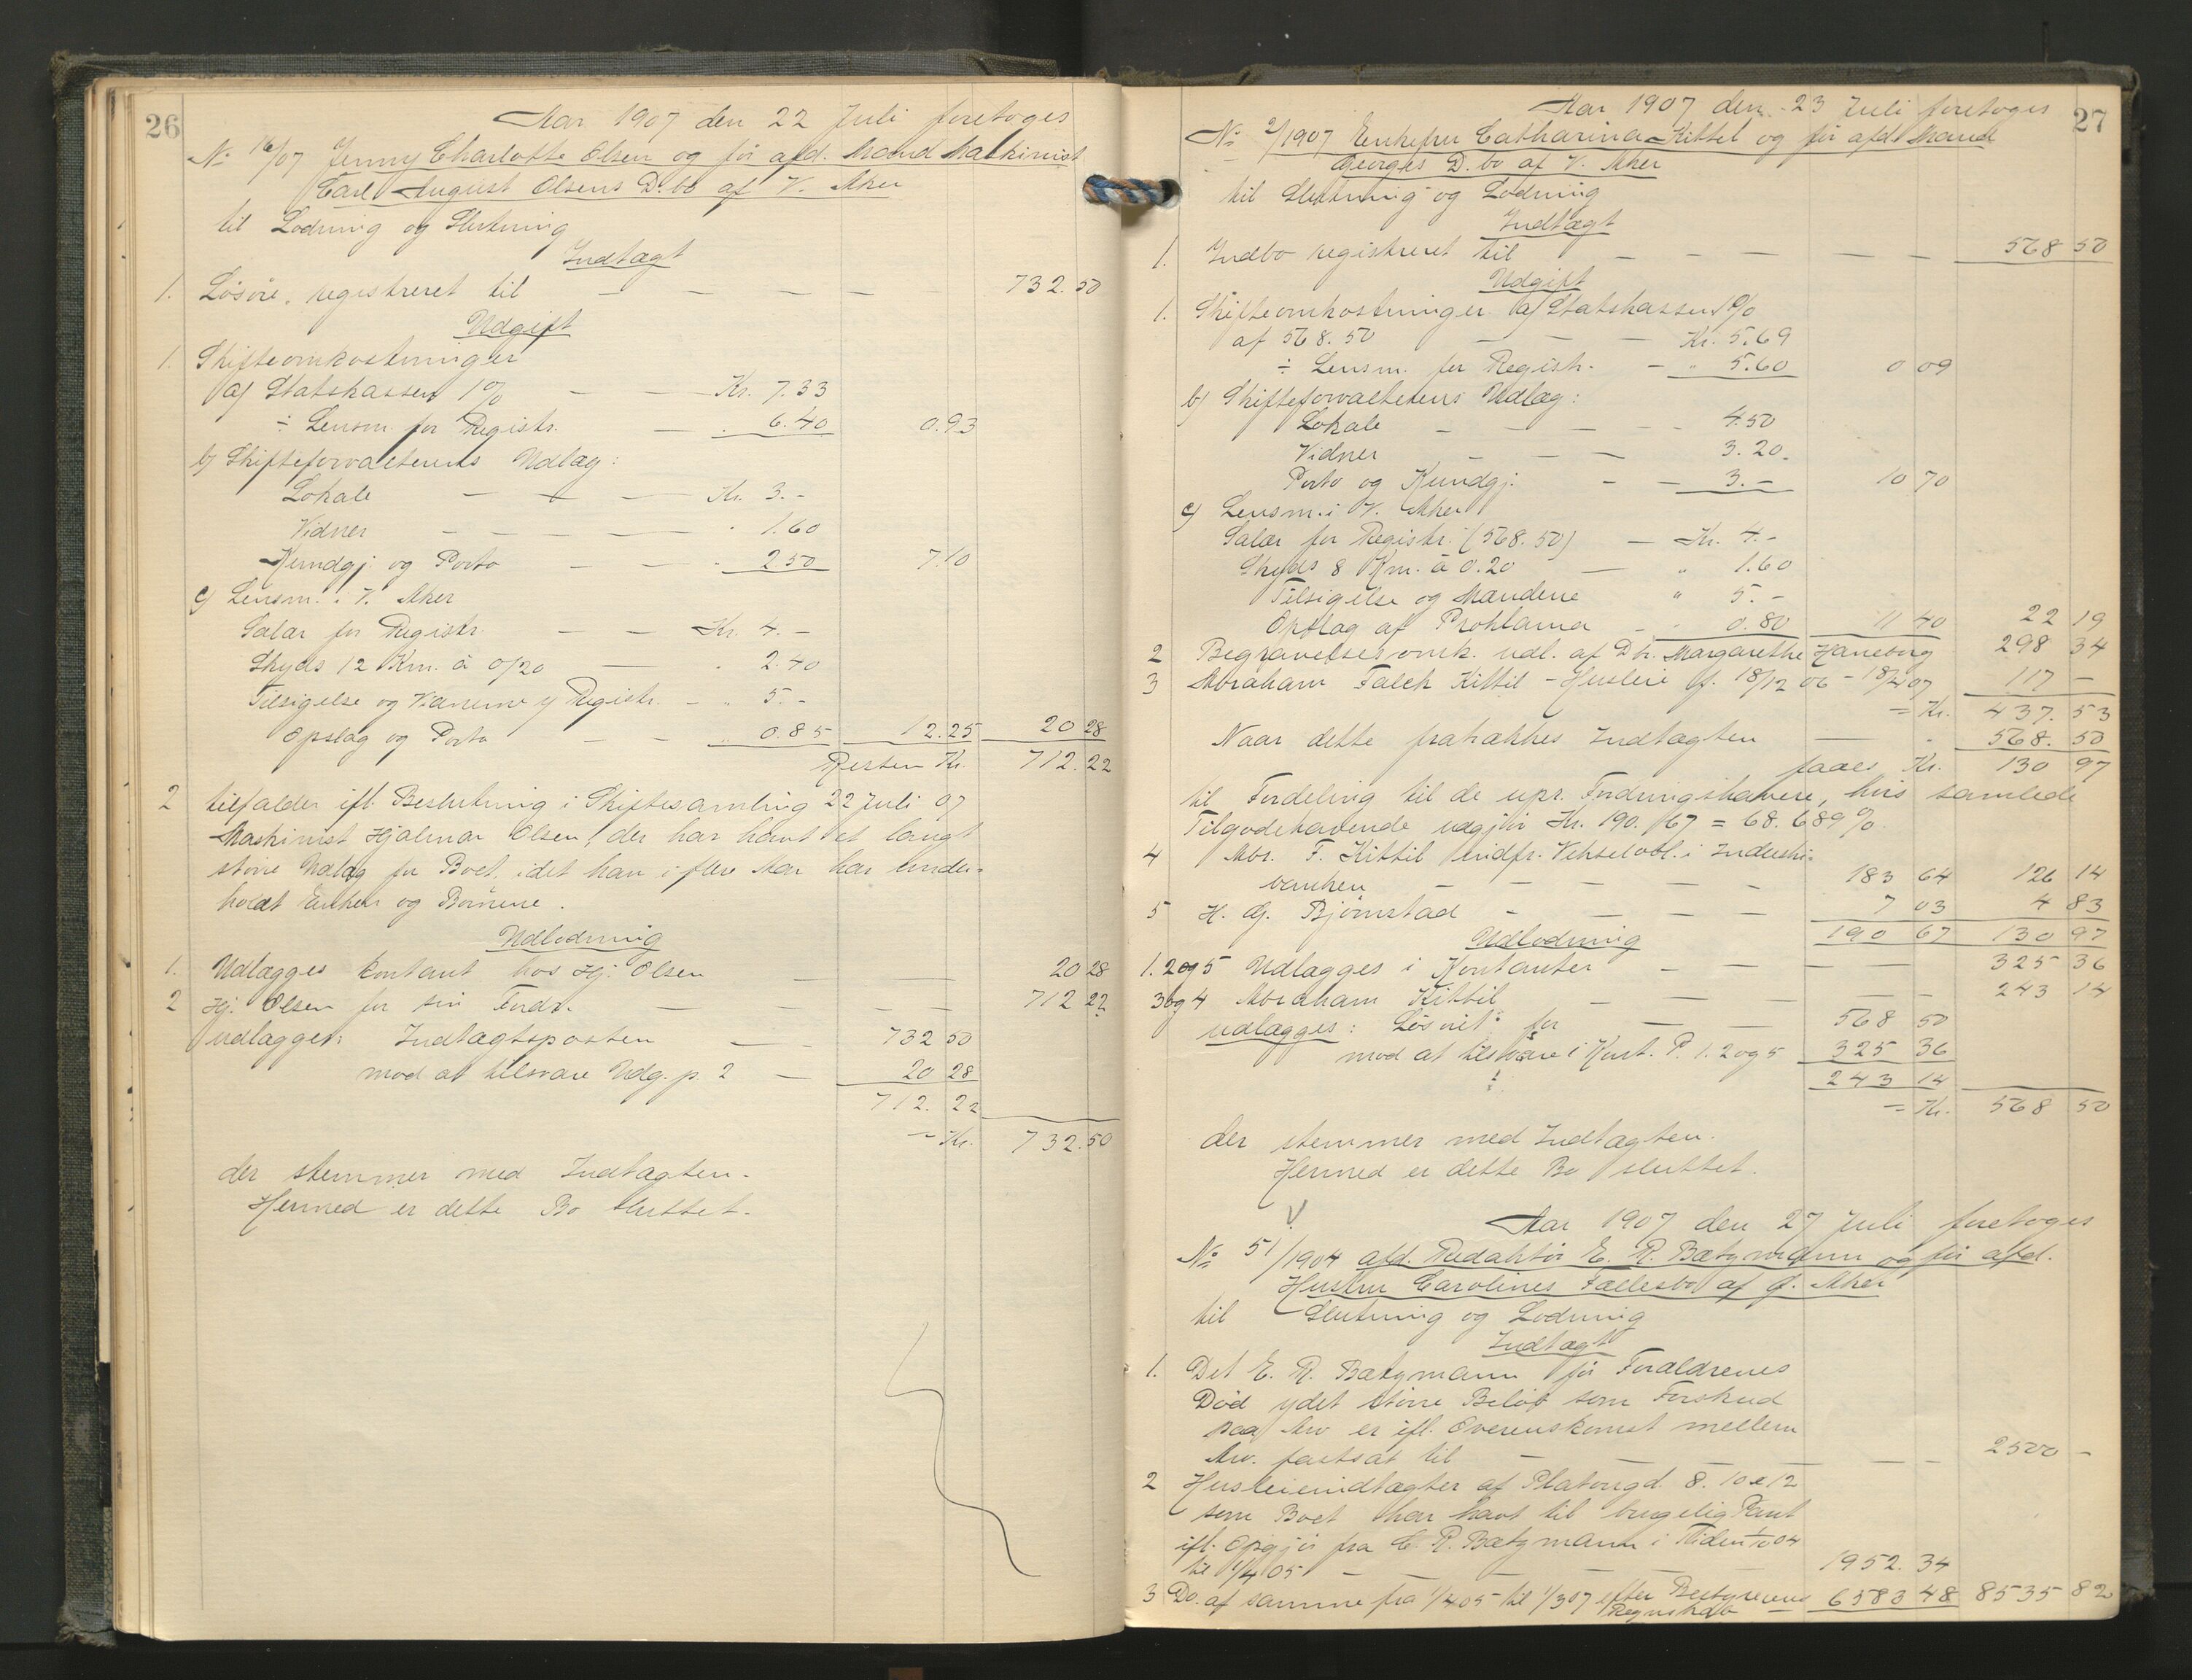 26
Aar 1907 den 22 Juli foretoges
No 16/07 Jenny Charlotte Olsen og før afd. Mand Maskinist
Carl August Olsens D.bo af V. Aker
til Lodning og Slutning
Indtægt
1. Løsøre, registreret til — — — — — 732.50
Udgift
1. Skifteomkostninger
a) Statskassen 1% — — Kr. 7.33
÷ Lensm. for Registr. — " 6.40 0.93
b) Skifteforvalterens Udlæg:
Lokale — — — Kr. 3.-
Vidner — — — — " 1.60
Kundgj. og Porto — — — " 2.50 7.10
c) Lensm. i V. Aker
Salær for Registr. — — Kr. 4.-
Skyds 12 Km. à 0/20 — " 2.40
Tilsigelse og Vidnerne v/ Registr. — " 5.-
Opslag og Porto — — 0.85 12.25 20 28
Resten Kr. 712.22
2 tilfalder ifl. Beslutning i Skiftesamling 22 Juli 07
Maskinist Hjalmar Olsen, der har havt et langt
større Udlæg for Boet, idet han i flere Aar har under-
holdt Enken og Børnene.
Udlodning
1. Udlægges kontant hos Hj. Olsen — — 20 28
2 Hj. Olsen for sin Fordr. — — — — 712 22
udlægges: Indtægtsposten — — 732 50
mod at tilsvare Udg. p. 2 — 20 28
712. 22
= Kr. 732.50
der stemmer med Indtægten.
Hermed er dette Bo sluttet.
27
Aar 1907 den 23 Juli foretoges
No 2/1907 Enkefru Catharina Kittel og før afdt Mand
Georgs D.bo af V. Aker
til Slutning og Lodning
Indtægt
1. Indbo registreret til — — — — — — 568 50
Udgift
1. Skifteomkostninger a) Statskassen 1%
af 568.50 — — — Kr. 5.69
÷ Lensm. for Registr. — " 5.60 0 09
b) Skifteforvalterens Udlæg:
Lokale — — — — 4.50
Vidner — — — 3.20.
Porto og Kundgj. — — 3.- 10 70
c) Lensm. i V. Aker
Salær for Registr. (568.50) — Kr. 4.-
Skyds 8 Km. à 0.20 — " 1.60
Tilsigelse og Mændene " 5.-
Opslag af Proklama — " 0.80 11 40 22 19
2 Begravelsesomk. udl. af Dr. Margarethe Haneborg 298 34
3 Abraham Falck Kittil - Husleie f. 18/12 06 - 18/4 07 117 -
= Kr. 437. 53
Naar dette fratrækkes Indtægten — " 568. 50
faaes Kr. 130 97
til Fordeling til de upr. Fordringshavere, hvis samlede
Tilgodehavende udgjør Kr. 190.67 = 68.689%.
4 Abr. F. Kittil indfr. Vekselobl. i Industri-
banken — — — — — 183 64 126 14
5 H. G. Bjørnstad — — — — 7 03 4 83
190 67 130 97
Udlodning
1. 2 og 5 Udlægges i Kontanter — — — — 325 36
3 og 4 Abraham Kittil — — — — — 243 14
udlægges: Løsøret for — — 568 50
mod at tilsvare i Kont. P. 1. 2 og 5 325 36
243 14
= Kr. 568 50
der stemmer med Indtægten.
Hermed er dette Bo sluttet.
Aar 1907 den 27 Juli foretoges
No 51/1904 afd. Redaktør E. R. Bætzmann og før afd.
Hustru Carolines Fællesbo af Ø. Aker
til Slutning og Lodning
Indtægt
1. Det E. R. Bætzmann før Forældrenes
Død ydet større Beløb som Forskud
paa Arv er ifl. Overenskomst mellem
Arv. fastsat til — — — — — — 2500 -
2 Husleieindtægter af Platousgd. 8. 10 & 12
som Boet har havt til brugelig Pant
ifl. Opgjør fra E. R. Bætzmann i Tiden 1/10 04
til 1/4 05 — — — — — 1952. 34
3 Do. af samme fra 1/4 05 til 1/3 07 efter Bestyrerens
Regnskab — 6583 48 8535 82